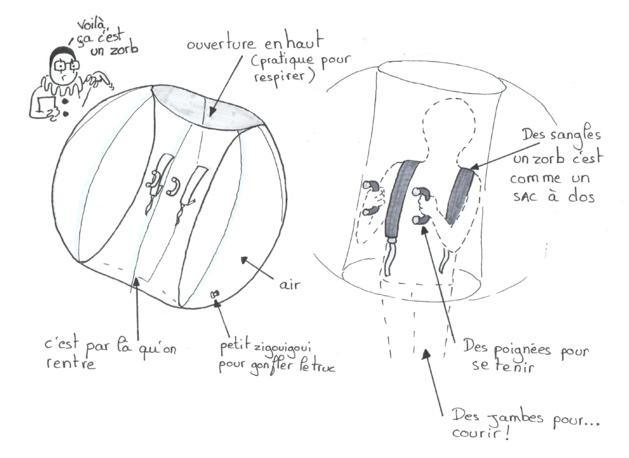 voilà,
ça c'est
un zorb
ouverture en haut
(pratique pour
respirer)
Des sangles
un zorb c'est
comme un
SAC à dos
air
c'est par là qu'on
rentre
petit zigouigoui
pour gonfler le truc
Des poignées pour
se tenir
Des jambes pour...
courir!